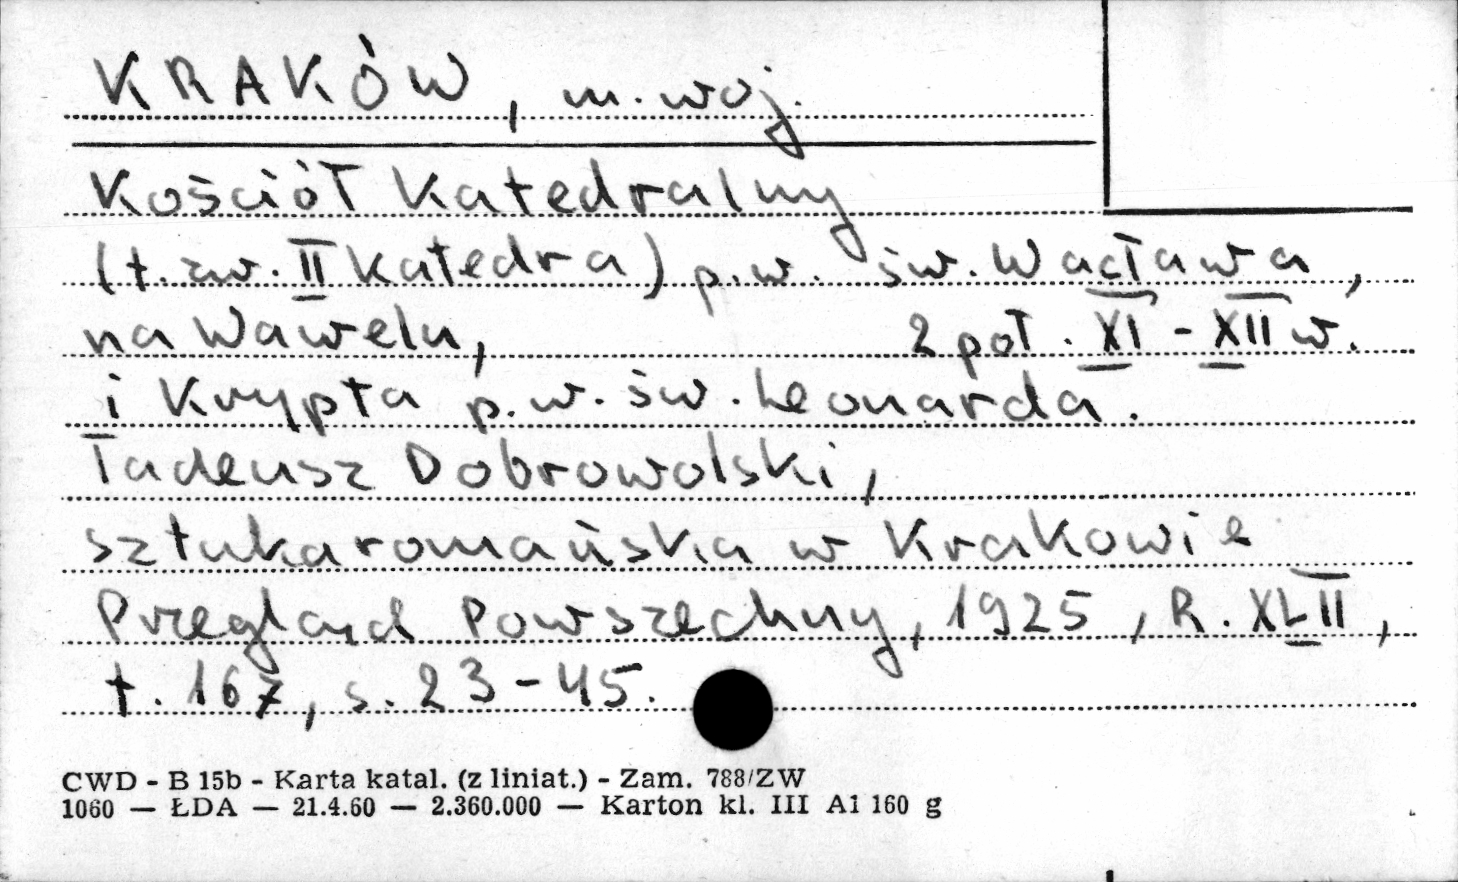 KRAKÓW, m. woj.
Kościół Katedralny
(t.zw. II Katedra) p.w. św. Wacława,
na Wawelu, 2 poł. XI - XII w.
i Krypta p.w. św. Leonarda.
Tadeusz Dobrowolski,
sztuka romańska w Krakowie
Przegląd Powszechny, 1925, R. XLII,
t. 167, s. 23-45.
CWD - B 15b - Karta katal. (z liniat.) - Zam. 788/ZW
1060 — ŁDA — 21.4.60 — 2.360.000 — Karton kl. III A1 160 g